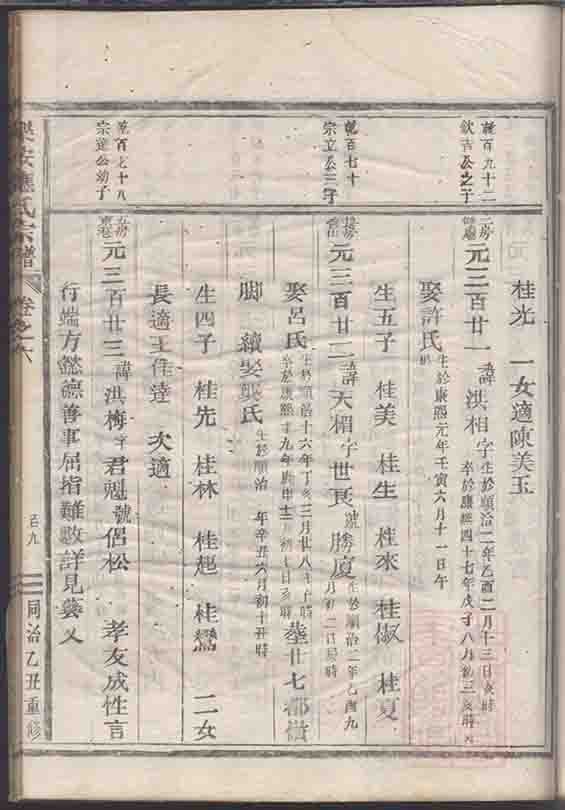 桂光 一女適陳美玉
乾百九十二
欽吉公之子
二房
元三百廿一 諱洪相 字
生於順治二年乙酉二月十三日亥時
卒於康熙四十七年戊子八月初三亥時
娶許氏
生於康熙元年壬寅六月十一日午
時
生五子 桂美 桂生 桂來 桂椒 桂夏
乾百七十
宗立公三子
元三百廿二 諱天楣 字世良 號勝廈
生於順治二年乙酉九
月初二日 時
娶呂氏
生於順治十六年丁亥三月廿八 子時
卒於康熙 十九年 申十二 初七日亥時
塟廿七都
脚 續娶 氏
生於順治 年辛丑六月初十丑時
生四子 桂先 桂林 桂起 桂鸞 二女
長適王佳達 次適
乾百七十八
宗達公幼子
元三百廿三 諱洪梅 字君魁 號侶松 孝友成性言
行端方懿德善事屈指難數詳見藝文
氏宗譜 卷之六 百九 同治乙丑重修